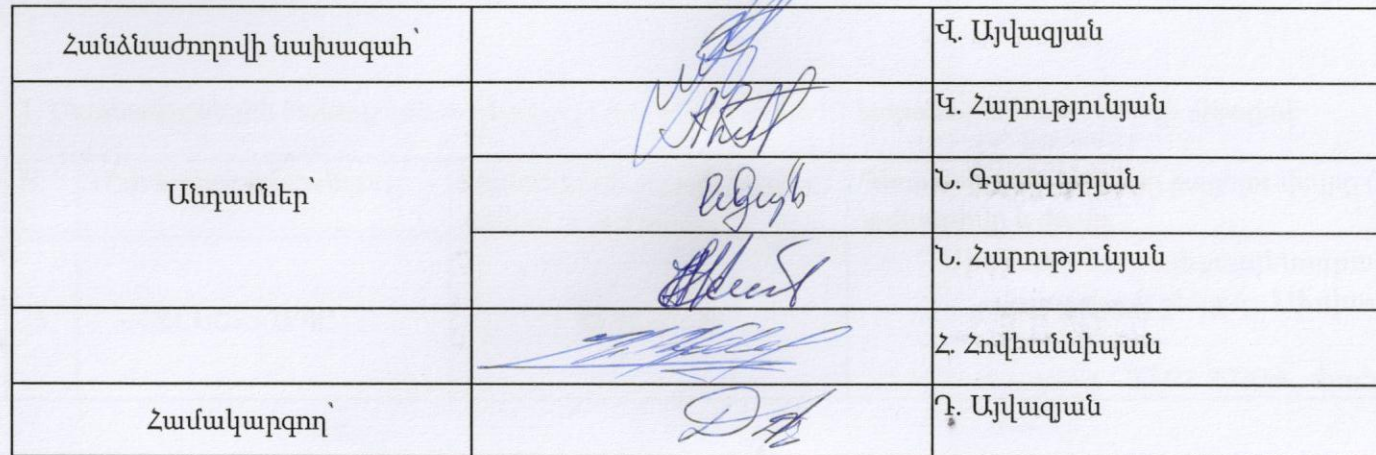 Հանձնաժողովի նախագահ՝
Վ. Այվազյան
Կ. Հարությունյան
Անդամներ՝
Ն. Գասպարյան
Ն. Հարությունյան
Հ. Հովհաննիսյան
Համակարգող՝
Դ. Այվազյան